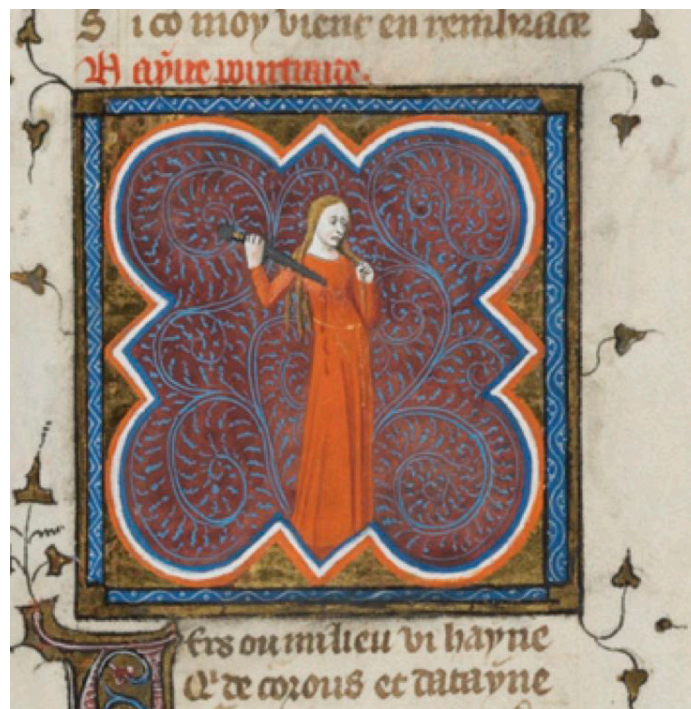 Si co moy vient en rembrace
Hayne pourtraite.
Ens ou milieu vi hayne
Qi de corous et datayne